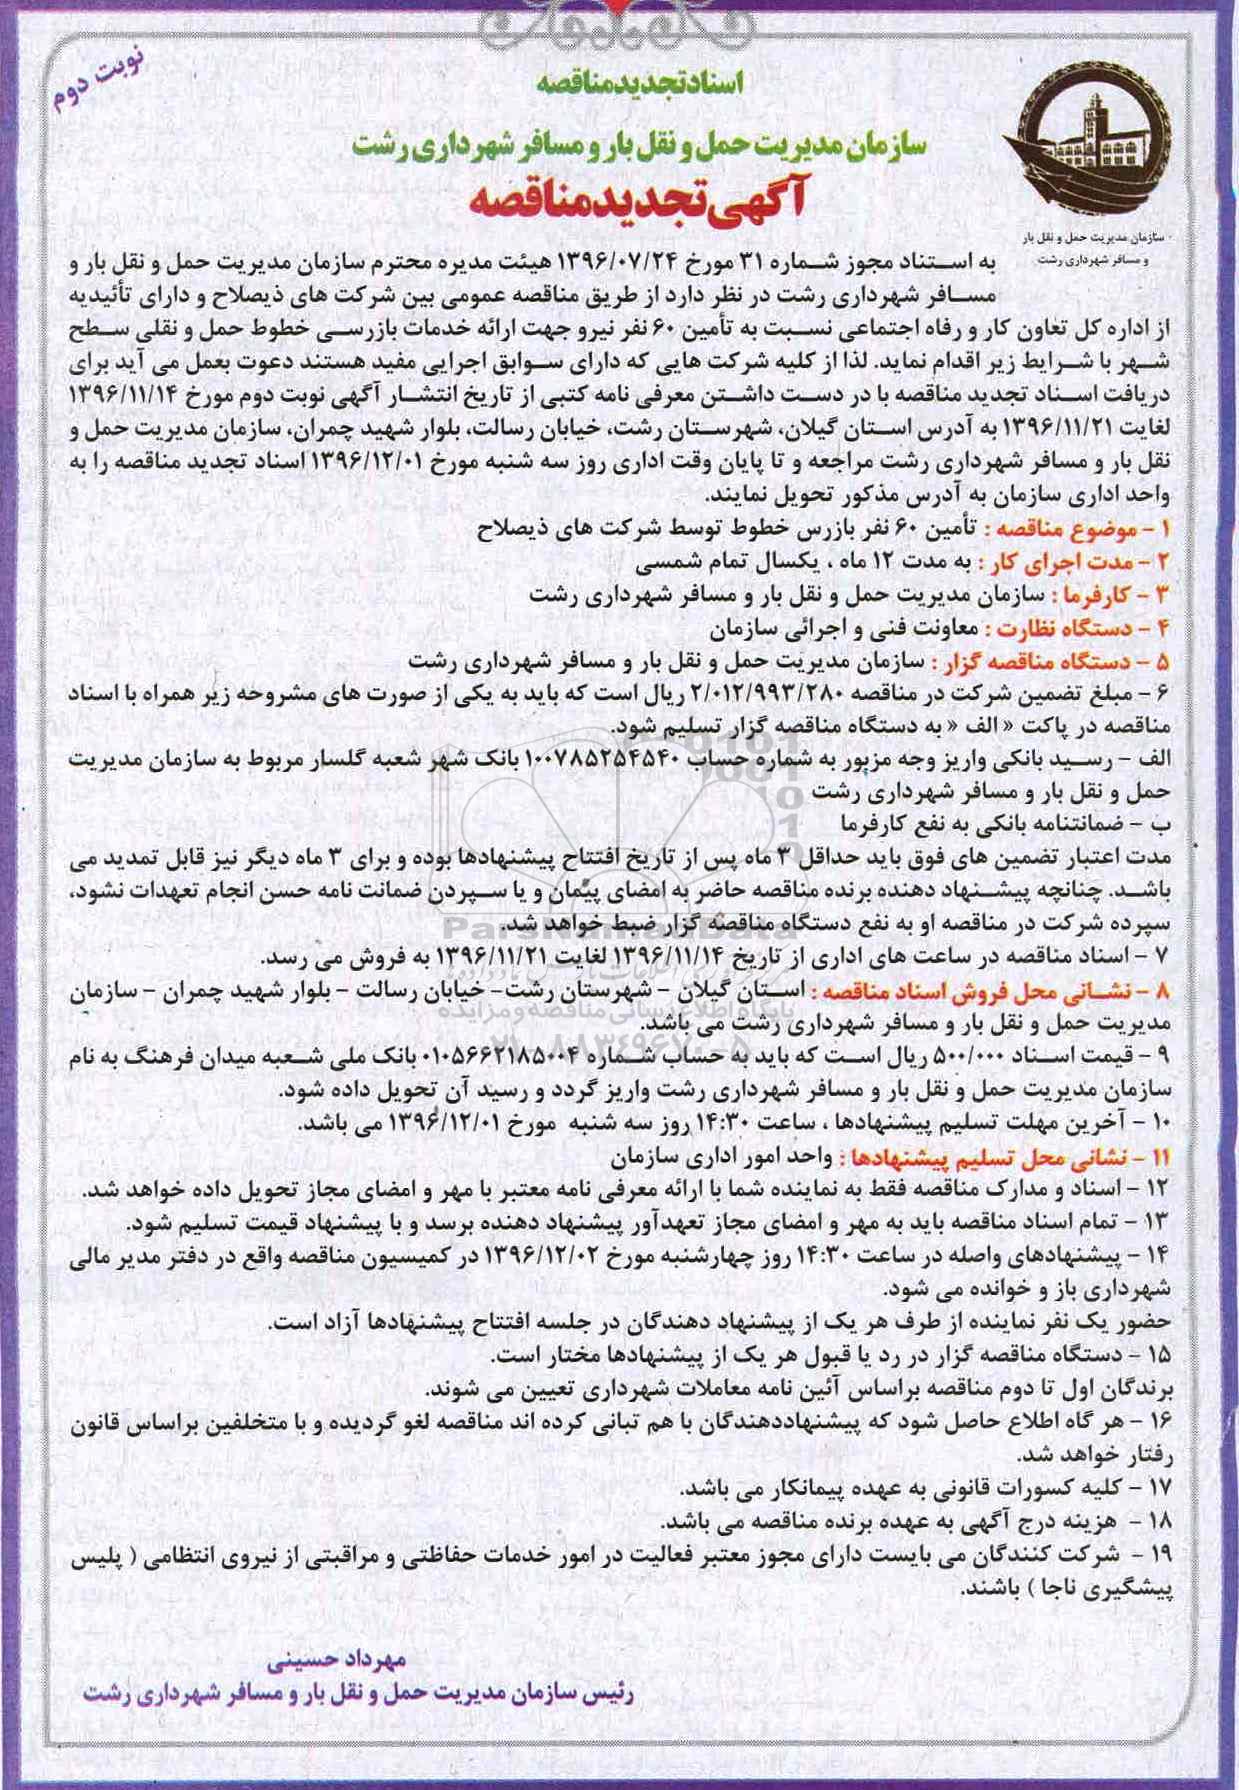 نوبت دوم
اسناد تجدید مناقصه
سازمان مدیریت حمل و نقل بار و مسافر شهرداری رشت
آگهی تجدید مناقصه
سازمان مدیریت حمل و نقل بار
و مسافر شهرداری رشت
به استناد مجوز شماره ۳۱ مورخ ۱۳۹۶/۰۷/۲۴ هیئت مدیره محترم سازمان مدیریت حمل و نقل بار و
مسافر شهرداری رشت در نظر دارد از طریق مناقصه عمومی بین شرکت های ذیصلاح و دارای تأئیدیه
از اداره کل تعاون کار و رفاه اجتماعی نسبت به تأمین ۶۰ نفر نیرو جهت ارائه خدمات بازرسی خطوط حمل و نقلی سطح
شهر با شرایط زیر اقدام نماید. لذا از کلیه شرکت هایی که دارای سوابق اجرایی مفید هستند دعوت بعمل می آید برای
دریافت اسناد تجدید مناقصه با در دست داشتن معرفی نامه کتبی از تاریخ انتشار آگهی نوبت دوم مورخ ۱۳۹۶/۱۱/۱۴
لغایت ۱۳۹۶/۱۱/۲۱ به آدرس استان گیلان، شهرستان رشت، خیابان رسالت، بلوار شهید چمران، سازمان مدیریت حمل و
نقل بار و مسافر شهرداری رشت مراجعه و تا پایان وقت اداری روز سه شنبه مورخ ۱۳۹۶/۱۲/۰۱ اسناد تجدید مناقصه را به
واحد اداری سازمان به آدرس مذکور تحویل نمایند.
۱ - موضوع مناقصه : تأمین ۶۰ نفر بازرس خطوط توسط شرکت های ذیصلاح
۲ - مدت اجرای کار : به مدت ۱۲ ماه ، یکسال تمام شمسی
۳ - کارفرما : سازمان مدیریت حمل و نقل بار و مسافر شهرداری رشت
۴ - دستگاه نظارت : معاونت فنی و اجرائی سازمان
۵ - دستگاه مناقصه گزار : سازمان مدیریت حمل و نقل بار و مسافر شهرداری رشت
۶ - مبلغ تضمین شرکت در مناقصه ۲/۰۱۲/۹۹۳/۲۸۰ ریال است که باید به یکی از صورت های مشروحه زیر همراه با اسناد
مناقصه در پاکت « الف « به دستگاه مناقصه گزار تسلیم شود.
الف - رسید بانکی واریز وجه مزبور به شماره حساب ۱۰۰۷۸۵۲۵۴۵۴۰ بانک شهر شعبه گلسار مربوط به سازمان مدیریت
حمل و نقل بار و مسافر شهرداری رشت
ب - ضمانتنامه بانکی به نفع کارفرما
مدت اعتبار تضمین های فوق باید حداقل ۳ ماه پس از تاریخ افتتاح پیشنهادها بوده و برای ۳ ماه دیگر نیز قابل تمدید می
باشد. چنانچه پیشنهاد دهنده برنده مناقصه حاضر به امضای پیمان و یا سپردن ضمانت نامه حسن انجام تعهدات نشود،
سپرده شرکت در مناقصه او به نفع دستگاه مناقصه گزار ضبط خواهد شد.
۷ - اسناد مناقصه در ساعت های اداری از تاریخ ۱۳۹۶/۱۱/۱۴ لغایت ۱۳۹۶/۱۱/۲۱ به فروش می رسد.
۸ - نشانی محل فروش اسناد مناقصه : استان گیلان - شهرستان رشت- خیابان رسالت - بلوار شهید چمران - سازمان
مدیریت حمل و نقل بار و مسافر شهرداری رشت می باشد.
۹ - قیمت اسناد ۵۰۰/۰۰۰ ریال است که باید به حساب شماره ۰۱۰۵۶۶۲۱۸۵۰۰۴ بانک ملی شعبه میدان فرهنگ به نام
سازمان مدیریت حمل و نقل بار و مسافر شهرداری رشت واریز گردد و رسید آن تحویل داده شود.
۱۰ - آخرین مهلت تسلیم پیشنهادها ، ساعت ۱۴:۳۰ روز سه شنبه مورخ ۱۳۹۶/۱۲/۰۱ می باشد.
۱۱ - نشانی محل تسلیم پیشنهادها : واحد امور اداری سازمان
۱۲ - اسناد و مدارک مناقصه فقط به نماینده شما با ارائه معرفی نامه معتبر با مهر و امضای مجاز تحویل داده خواهد شد.
۱۳ - تمام اسناد مناقصه باید به مهر و امضای مجاز تعهدآور پیشنهاد دهنده برسد و با پیشنهاد قیمت تسلیم شود.
۱۴ - پیشنهادهای واصله در ساعت ۱۴:۳۰ روز چهارشنبه مورخ ۱۳۹۶/۱۲/۰۲ در کمیسیون مناقصه واقع در دفتر مدیر مالی
شهرداری باز و خوانده می شود.
حضور یک نفر نماینده از طرف هر یک از پیشنهاد دهندگان در جلسه افتتاح پیشنهادها آزاد است.
۱۵ - دستگاه مناقصه گزار در رد یا قبول هر یک از پیشنهادها مختار است.
برندگان اول تا دوم مناقصه براساس آئین نامه معاملات شهرداری تعیین می شوند.
۱۶ - هر گاه اطلاع حاصل شود که پیشنهاددهندگان با هم تبانی کرده اند مناقصه لغو گردیده و با متخلفین براساس قانون
رفتار خواهد شد.
۱۷ - کلیه کسورات قانونی به عهده پیمانکار می باشد.
۱۸ - هزینه درج آگهی به عهده برنده مناقصه می باشد.
۱۹ - شرکت کنندگان می بایست دارای مجوز معتبر فعالیت در امور خدمات حفاظتی و مراقبتی از نیروی انتظامی ( پلیس
پیشگیری ناجا ) باشند.
مهرداد حسینی
رئیس سازمان مدیریت حمل و نقل بار و مسافر شهرداری رشت
پایگاه اطلاع رسانی مناقصه و مزایده
۰۲۱-۸۸۳۴۹۶۷۰-۵